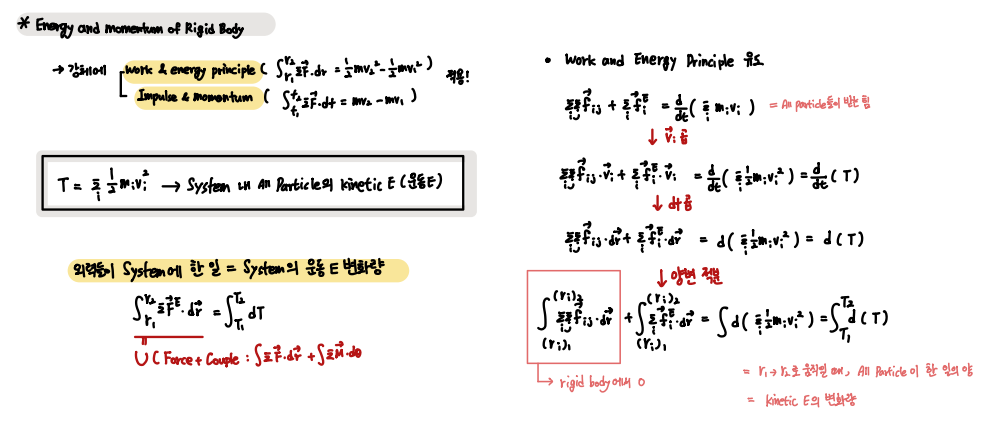 * Energy and momentum of Rigid Body
→ 강체에 work & energy principle ( ∫_{r₁}^{r₂} ΣF⃗·dr = ½mv₂² - ½mv₁² ) 적용!
Impulse & momentum ( ∫_{t₁}^{t₂} ΣF⃗·dt = mv₂ - mv₁ )
T = Σ_i ½ m_i v_i² → System 내 All Particle의 kinetic E (운동E)
외력들이 System에 한 일 = System의 운동 E 변화량
∫_{r₁}^{r₂} ΣF⃗^E·dr⃗ = ∫_{T₁}^{T₂} dT
U ( Force + Couple : ∫ΣF⃗·dr⃗ + ∫ΣM⃗·dθ
• Work and Energy Principle 유도
ΣΣ_{ij} f⃗_{ij} + Σ_i f⃗_i^E = d/dt ( Σ_i m_i v_i ) = All particle들이 받는 힘
↓ v⃗_i 곱
ΣΣ_{ij} f⃗_{ij}·v⃗_i + Σ_i f⃗_i^E·v⃗_i = d/dt ( Σ_i ½ m_i v_i² ) = d/dt ( T )
↓ dt 곱
ΣΣ_{ij} f⃗_{ij}·dr⃗ + Σ_i f⃗_i^E·dr⃗ = d( Σ_i ½ m_i v_i² ) = d ( T )
↓ 양변 적분
∫_{(r_i)₁}^{(r_i)₂} ΣΣ_{ij} f⃗_{ij}·dr⃗ + ∫_{(r_i)₁}^{(r_i)₂} Σ_i f⃗_i^E·dr⃗ = ∫ d( Σ_i ½ m_i v_i² ) = ∫_{T₁}^{T₂} d ( T )
→ rigid body에서 0
= r₁ → r₂로 움직일 때, All Particle이 한 일의 양
= kinetic E의 변화량